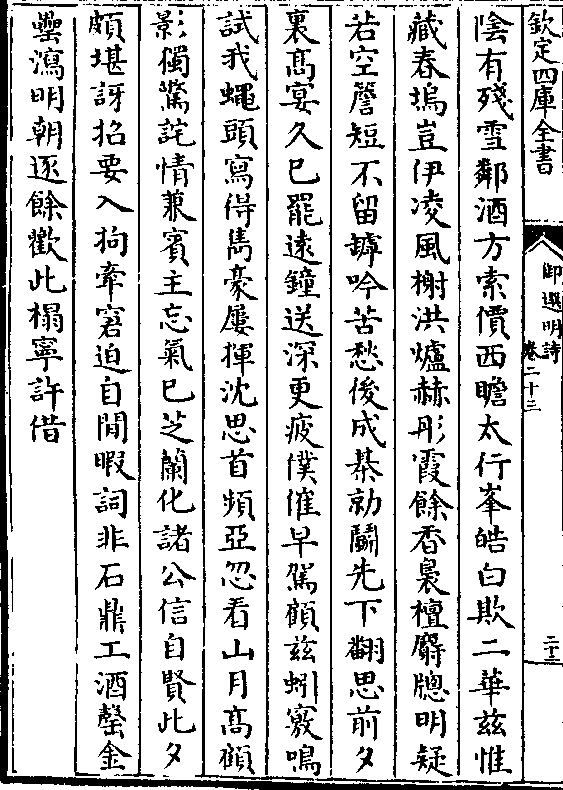 欽定四庫全書
御選明詩
卷二十三
二十三
陰有殘雪鄰酒方索價西瞻太行峯皓白欺二華兹惟
藏春塢豈伊凌風榭洪爐赫彤霞餘香裊檀麝牕明疑
若空簷短不留罅吟苦愁後成棊勍鬭先下翻思前夕
裏高宴久已罷遠鐘送深更疲僕催早駕顧兹蚓竅鳴
試我蠅頭寫得雋豪屢揮沈思首頻亞忽看山月高顧
影獨驚詫情兼賓主忘氣已芝蘭化諸公信自賢此夕
頗堪訝招要入拘牽窘迫自閒暇詞非石鼎工酒罄金
罍瀉明朝逐餘歡此榻寧許借